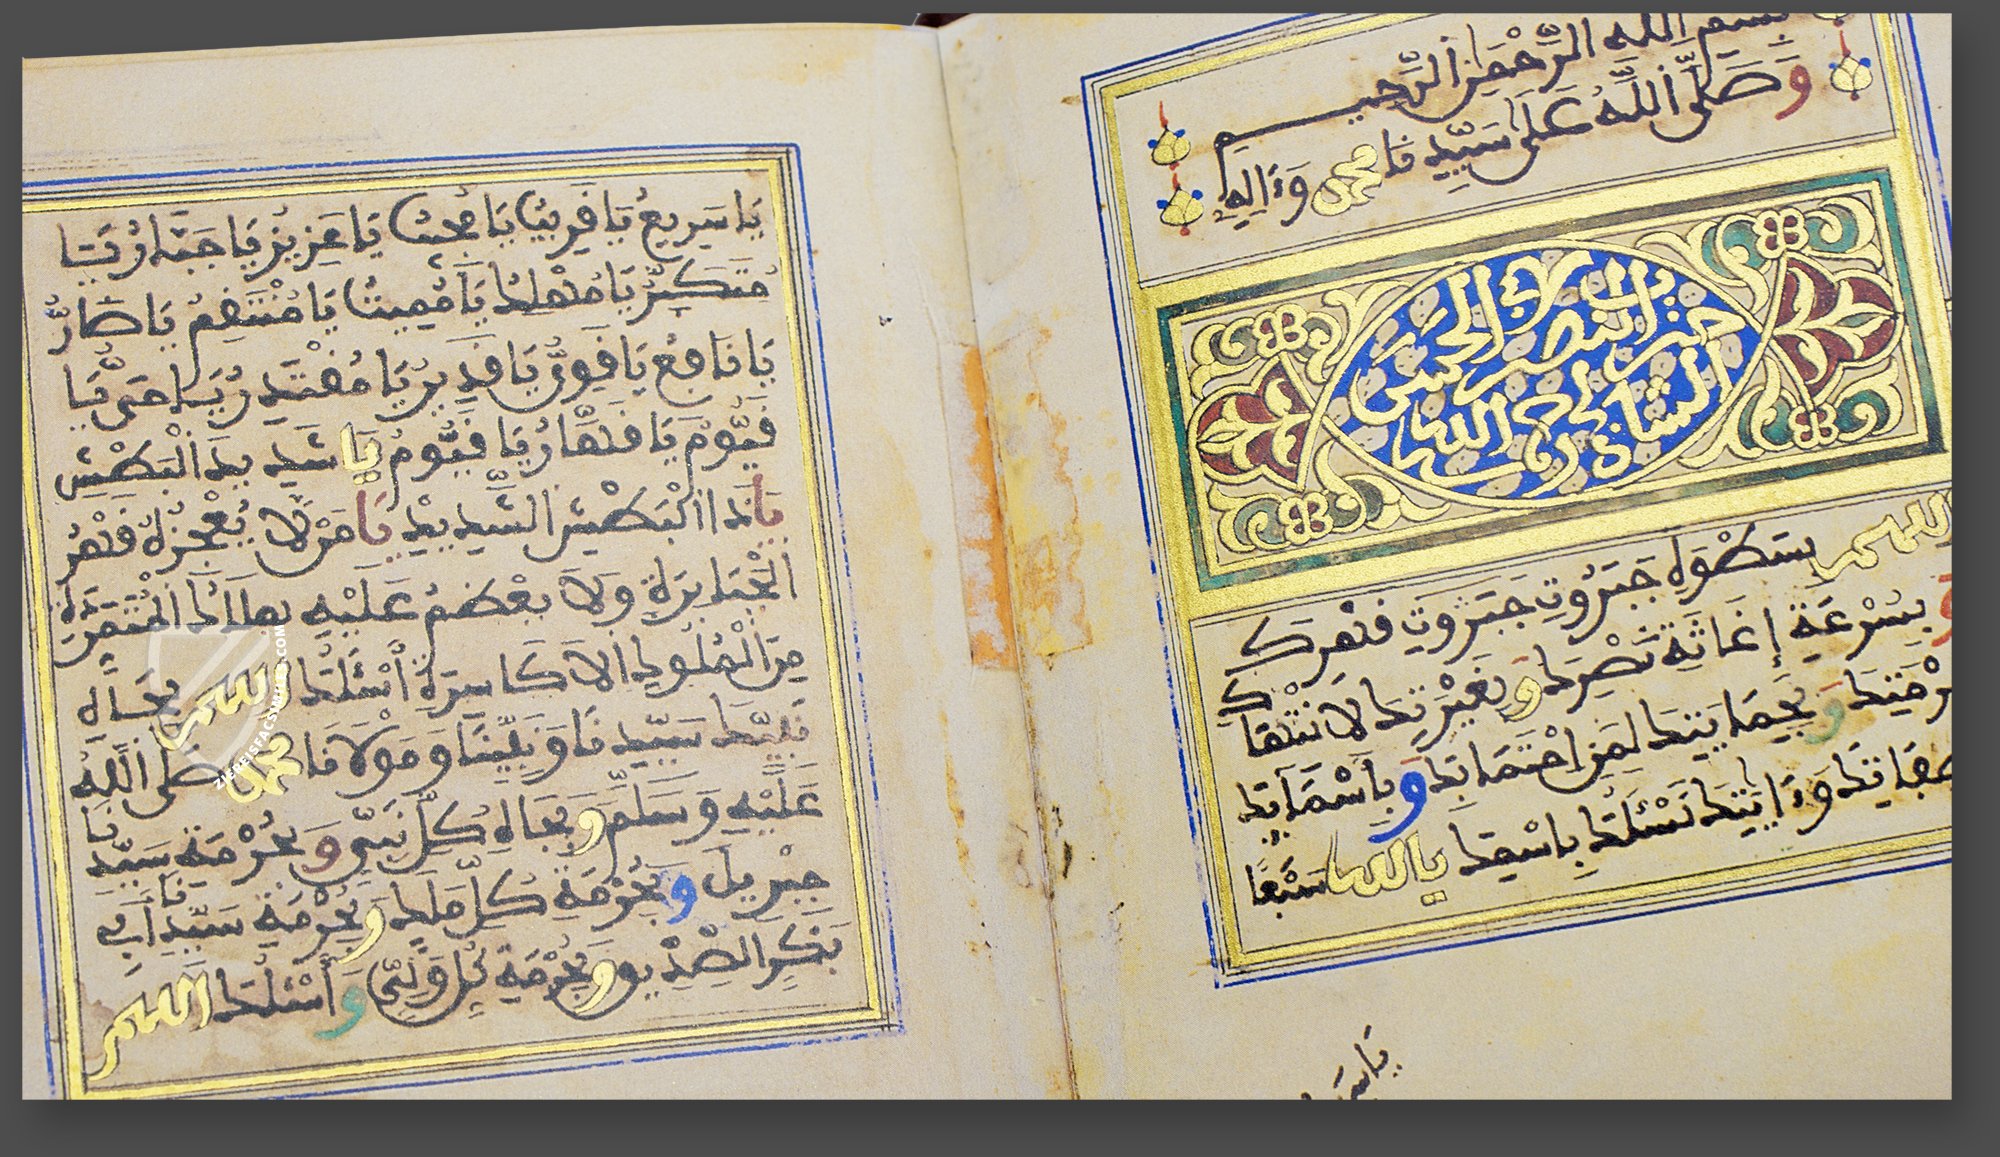 بسم الله الرَّحْمَنِ الرَّحِيمِ
وَصَلَّى اللَّهُ عَلَى سَيِّدِنَا مُحَمَّدٍ وَءَالِهِ
حزب النصر
الشاذلي رضي الله
اللهم
بِسَطْوَةِ جَبَرُوتِ قَهْرِكَ
وَبِسُرْعَةِ إِغَاثَةِ نَصْرِكَ وَبِغَيْرَتِكَ لِانْتِهَاكِ
حُرُمَتِكَ وَبِحِمَايَتِكَ لِمَنِ احْتَمَى بِكَ وَبِأَسْمَائِكَ
وَءَايَتِكَ نَسْئَلُكَ بِاسْمِكَ يا الله سَبْعًا
يَا سَرِيعُ يَا قَرِيبُ يَا مُجِيبُ يَا عَزِيزُ يَا جَبَّارُ يَا
مُتَكَبِّرُ يَا مُهْلِكُ يَا مُمِيتُ يَا مُنْتَقِمُ يَا ضَارُّ
يَا نَافِعُ يَا قَوِيُّ يَا قَدِيرُ يَا مُقْتَدِرُ يَا حَيُّ يَا
قَيُّومُ يَا قَهَّارُ يَا قَيُّومُ يَا شَدِيدَ الْبَطْشِ
يَا ذَا الْبَطْشِ الشَّدِيدِ يَا مَنْ لَا يُعْجِزُهُ قَهْرُ
الْجَبَابِرَةِ وَلَا يَعْظُمُ عَلَيْهِ هَلَاكُ الْمُتَمَرِّدَةِ
مِنَ الْمُلُوكِ الْأَكَاسِرَةِ أَسْئَلُكَ اللهم بِجَاهِ
نَبِيِّكَ سَيِّدِنَا وَنَبِيِّنَا وَمَوْلَانَا مُحَمَّدٍ صَلَّى اللَّهُ
عَلَيْهِ وَسَلَّمَ وَبِجَاهِ كُلِّ نَبِيٍّ وَبِحُرْمَةِ سَيِّدِنَا
جِبْرِيلَ وَبِحُرْمَةِ كُلِّ مَلَكٍ وَبِحُرْمَةِ سَيِّدِنَا أَبِي
بَكْرٍ الصِّدِّيقِ وَبِحُرْمَةِ كُلِّ وَلِيٍّ وَأَسْئَلُكَ اللهم
ZIEREISFACSIMILES.COM